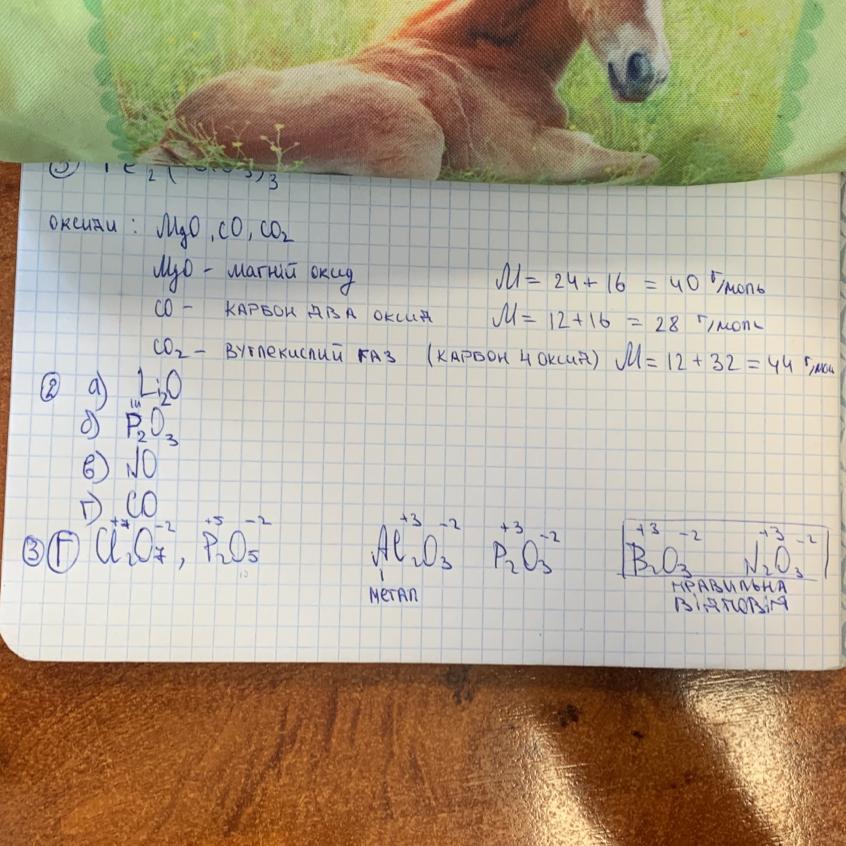 оксиди : MgO, CO, CO₂
MgO – магній оксид M = 24 + 16 = 40 г/моль
CO – карбон два оксид M = 12 + 16 = 28 г/моль
CO₂ – вуглекислий газ (карбон 4 оксид) M = 12 + 32 = 44 г/мол
② а) Li₂O
б) P₂O₃ III
в) NO
г) CO
③ Г Cl₂⁺⁷O₇⁻², P₂⁺⁵O₅⁻² Al₂⁺³O₃⁻² P₂⁺³O₃⁻² B₂⁺³O₃⁻² N₂⁺³O₃⁻²
метал правильна
відповідь